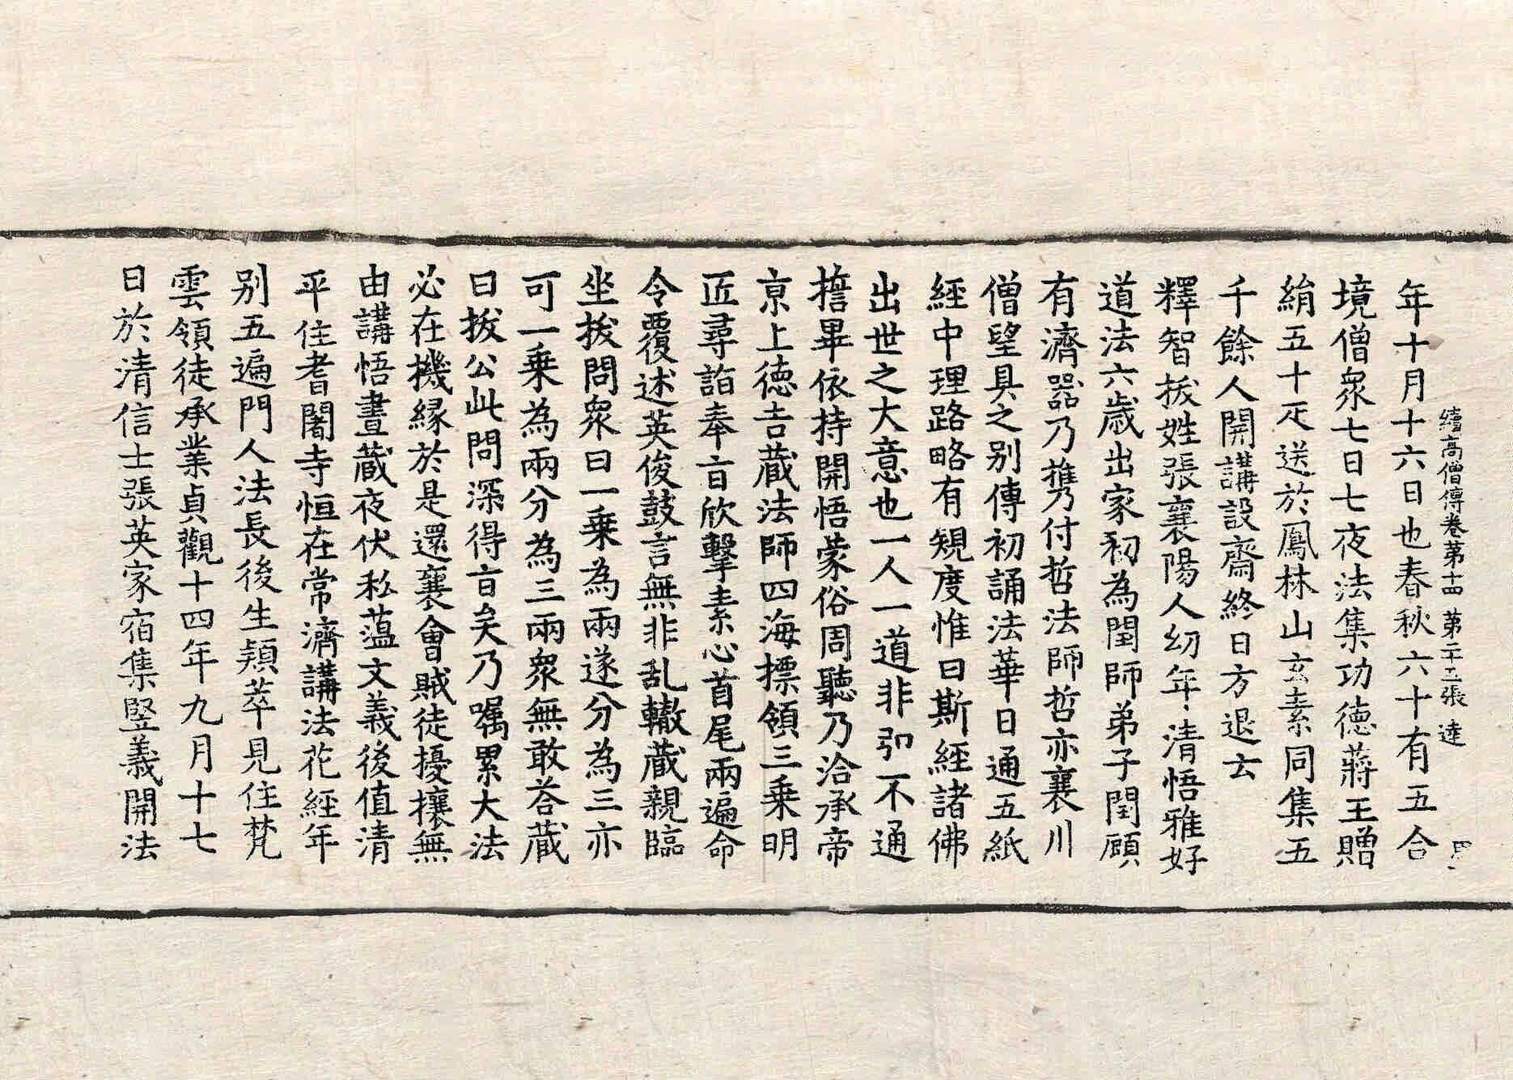 續高僧傳卷第十四 第二十五張 逵
年十月十六日也春秋六十有五合
境僧衆七日七夜法集功德蔣王贈
絹五十疋送於鳳林山玄素同集五
千餘人開講設齋終日方退云
釋智拔姓張襄陽人幼年清悟雅好
道法六歲出家初為閏師弟子閏顧
有濟器乃攜付哲法師哲亦襄川
僧望具之別傳初誦法華日通五紙
經中理路略有規度惟曰斯經諸佛
出世之大意也一人一道非弘不通
擔畢依持開悟蒙俗周聽乃洽承帝
京上德吉藏法師四海標領三乘明
匠尋詣奉旨欣擊素心首尾兩遍命
令覆述英俊鼓言無非乱轍藏親臨
坐拔問衆曰一乘為兩遂分為三亦
可一乘為兩分為三兩衆無敢荅藏
曰拔公此問深得旨矣乃囑累大法
必在機緣於是還襄會賊徒擾攘無
由講悟晝藏夜伏私薀文義後值清
平住耆闍寺恒在常濟講法花經年
別五遍門人法長後生頴萃見住梵
雲領徒承業貞觀十四年九月十七
日於清信士張英家宿集竪義開法